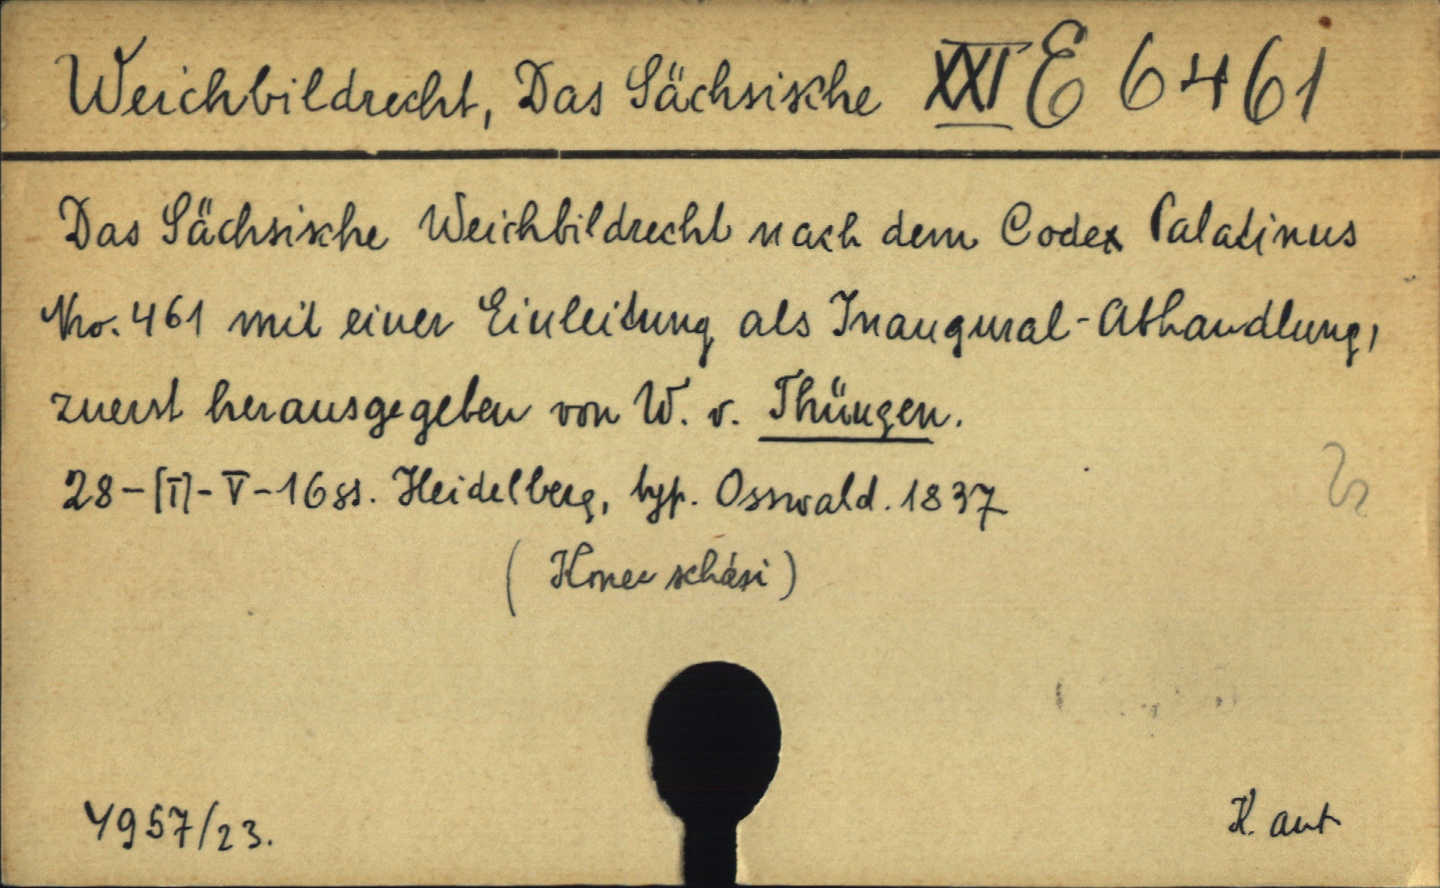 Weichbildrecht, Das Sächsische XXI E 6461
Das Sächsische Weichbildrecht nach dem Codex Palatinus
Nro. 461 mit einer Einleitung als Inaugural-Abhandlung,
zuerst herausgegeben von W. v. Thüngen.
28-[I]-V-16 ss. Heidelberg, typ. Osswald. 1837
4957/23.
K. aut